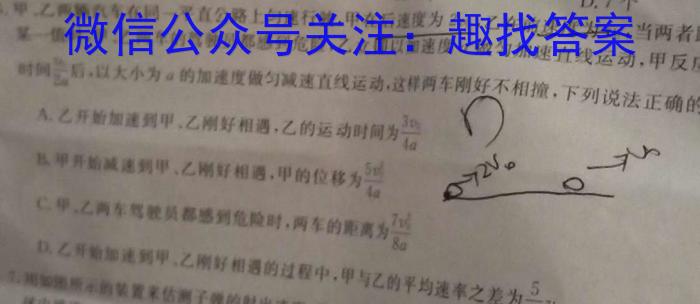 D. 7个
甲、乙两辆汽车在同一平直公路上
速度为
当两者
微信公众号关注：趣找答案
某一值
都感到危
加速直线运动，甲反应
时间v₀/2a后，以大小为a的加速度做匀减速直线运动，这样两车刚好不相撞，下列说法正确的
A. 乙开始加速到甲、乙刚好相遇，乙的运动时间为3v₀/4a
B. 甲开始减速到甲、乙刚好相遇，甲的位移为5v₀²/4a
C. 甲、乙两车驾驶员都感到危险时，两车的距离为7v₀²/8a
D. 乙开始加速到甲、乙刚好相遇的过程中，甲与乙的平均速率之差为5
2v₀
7. 用如图所示的装置来估测子弹的射出速度